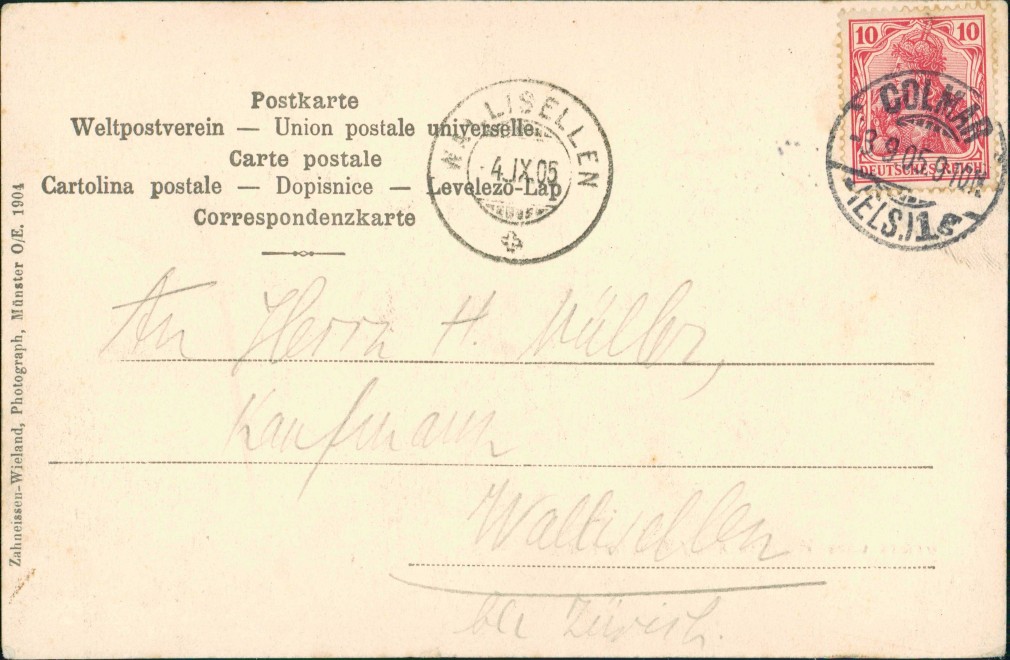 Postkarte
Weltpostverein — Union postale universelle
Carte postale
Cartolina postale — Dopisnice — Levelezö-Lap
Correspondenzkarte
WALLISELLEN
4.IX.05
10 10
DEUTSCHES REICH
COLMAR
-3 9 05 9-10N
(ELS.) 1e
An Herrn H. Müller,
Kaufmann
Wallisellen
bei Zürich.
Zahneissen-Wieland, Photograph, Münster O/E. 1904